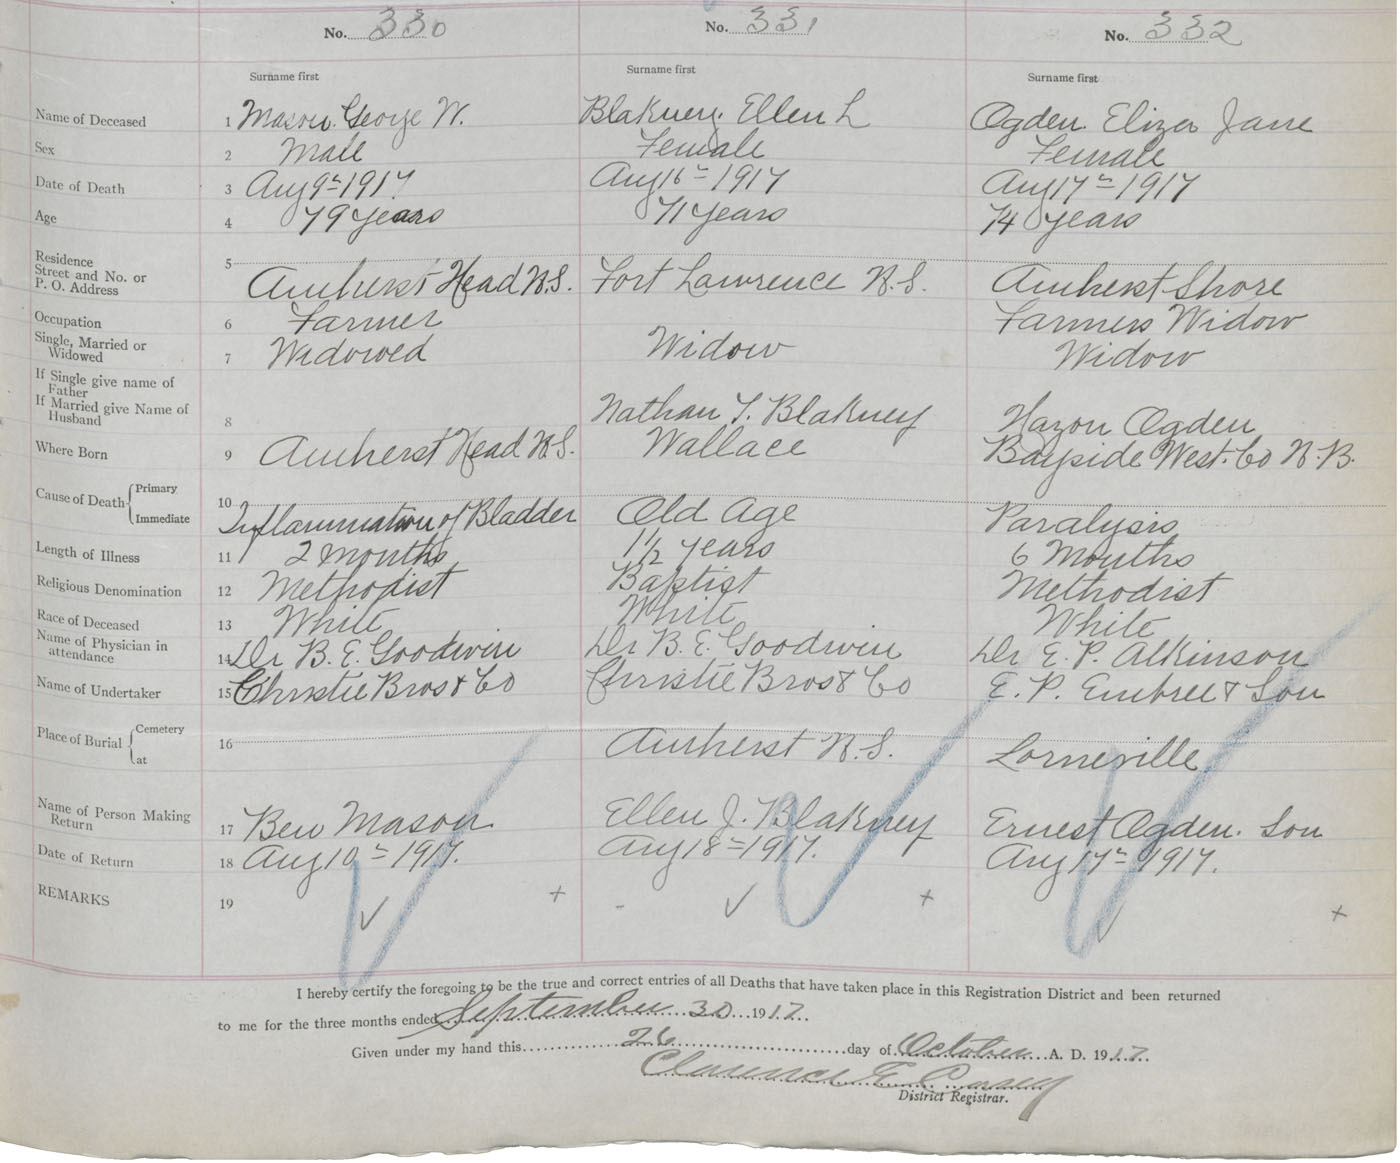 No. 330 No. 331 No. 332
Surname first Surname first Surname first
Name of Deceased 1 Mason. George W. Blakney. Ellen L Ogden. Eliza Jane
Sex 2 Male Female Female
Date of Death 3 Aug 9th 1917 Aug 16th 1917 Aug 17th 1917
Age 4 79 years 71 years 74 years
Residence 5
Street and No. or
P. O. Address Amherst Head N.S. Fort Lawrence N.S. Amherst Shore
Occupation 6 Farmer Farmers Widow
Single, Married or
Widowed 7 Widowed Widow Widow
If Single give name of
Father
If Married give Name of
Husband 8 Nathan T. Blakney Hazon Ogden
Where Born 9 Amherst Head N.S. Wallace Bayside West. Co N.B.
Cause of Death Primary 10
Immediate Inflammation of Bladder Old Age Paralysis
Length of Illness 11 2 months 1 1/2 years 6 Months
Religious Denomination 12 Methodist Baptist Methodist
Race of Deceased 13 White White White
Name of Physician in
attendance 14 Dr B. E. Goodwin Dr B. E. Goodwin Dr E. P. Atkinson
Name of Undertaker 15 Christie Bros & Co Christie Bros & Co E. P. Embree & Son
Place of Burial Cemetery 16
at Amherst N.S. Lorneville
Name of Person Making
Return 17 Ben Mason Ellen J. Blakney Ernest Ogden. Son
Date of Return 18 Aug 10th 1917. Aug 18th 1917. Aug 17th 1917.
REMARKS 19
I hereby certify the foregoing to be the true and correct entries of all Deaths that have taken place in this Registration District and been returned
to me for the three months ended September 30 1917.
Given under my hand this 26 day of October A. D. 1917.
Clarence E Casey
District Registrar.